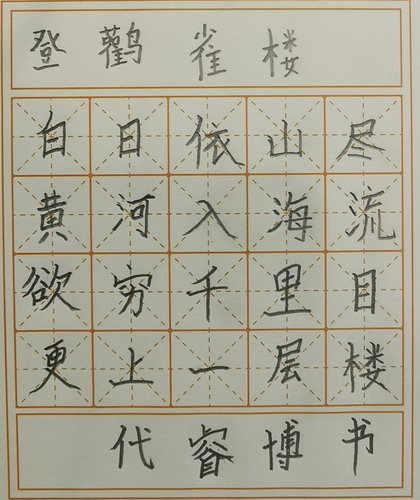 登鹳雀楼
白日依山尽
黄河入海流
欲穷千里目
更上一层楼
代睿博书